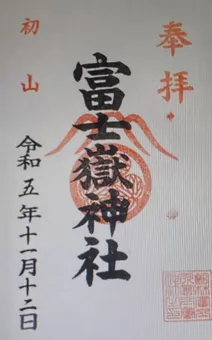 奉拝
富士嶽神社
初山
令和五年十一月十二日